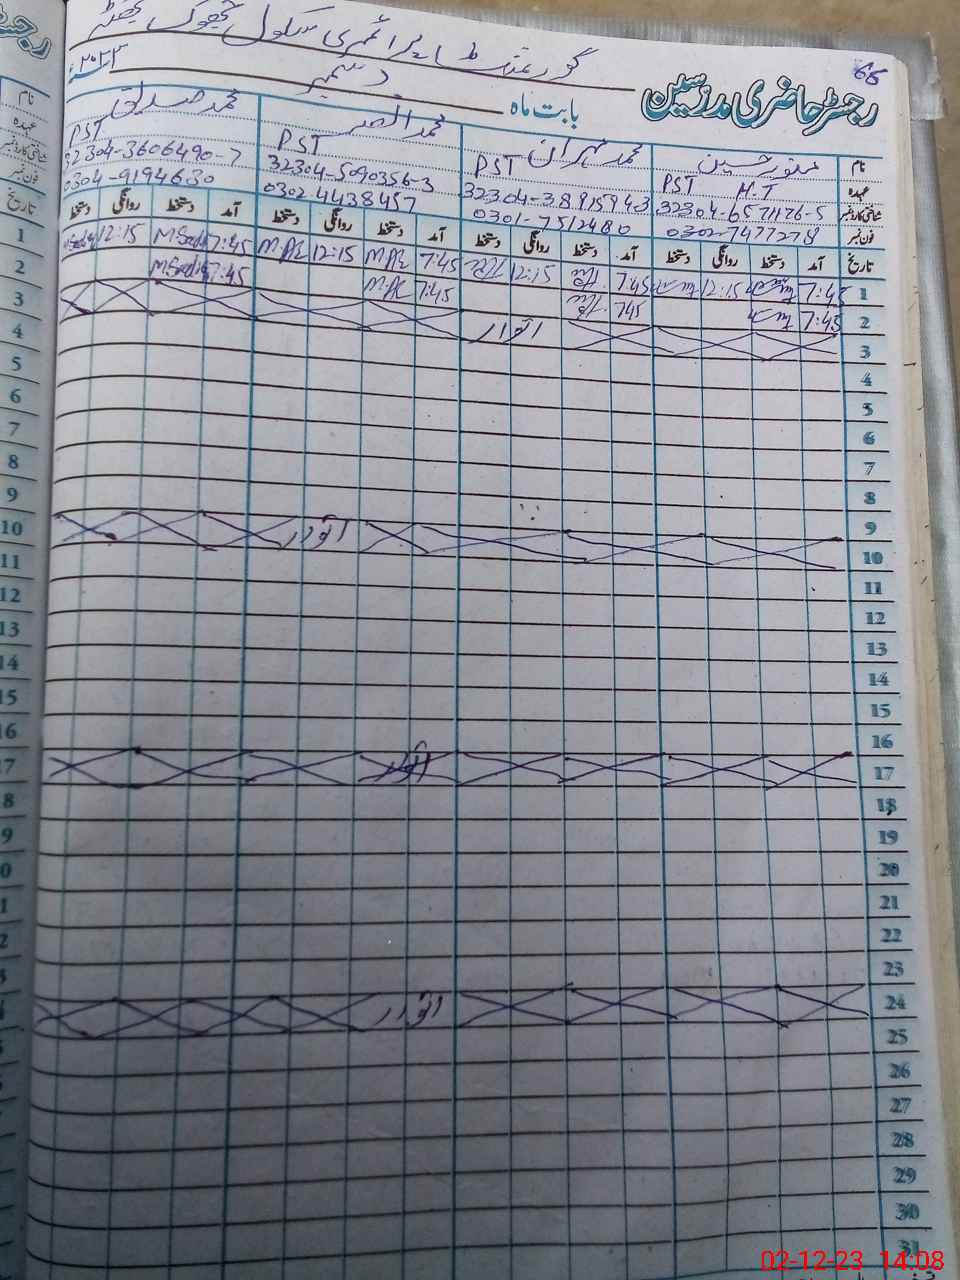 66
گورنمنٹ ایئر پرائمری سکول چوک
رجسٹر حاضری مدرسین
بابت ماہ دسمبر ۲۰۲۳
نام منور حسین محمد مہران محمد محمد صدیق
عہدہ PST H.T PST PST PST
شناختی کارڈ نمبر 32304-6571176-5 32304-3891594-3 32304-5090356-3 32304-3606490-7
فون نمبر 0302-7477278 0301-7512480 0302-4438457 0304-9194630
تاریخ آمد دستخط روانگی دستخط آمد دستخط روانگی دستخط آمد دستخط روانگی دستخط آمد دستخط روانگی دستخط
1 7:45 12:15 7:45 12:15 7:45 12:15 7:45 12:15
2 7:45 7:45 7:45 7:45
3 اتوار
4
5
6
7
8
9
10 اتوار
11
12
13
14
15
16
17 اتوار
18
19
20
21
22
23
24 اتوار
25
26
27
28
29
30
31
نام
عہدہ
شناختی کارڈ نمبر
فون نمبر
تاریخ
1
2
3
4
5
6
7
8
9
10
11
12
13
14
15
16
17
02-12-23 14:08